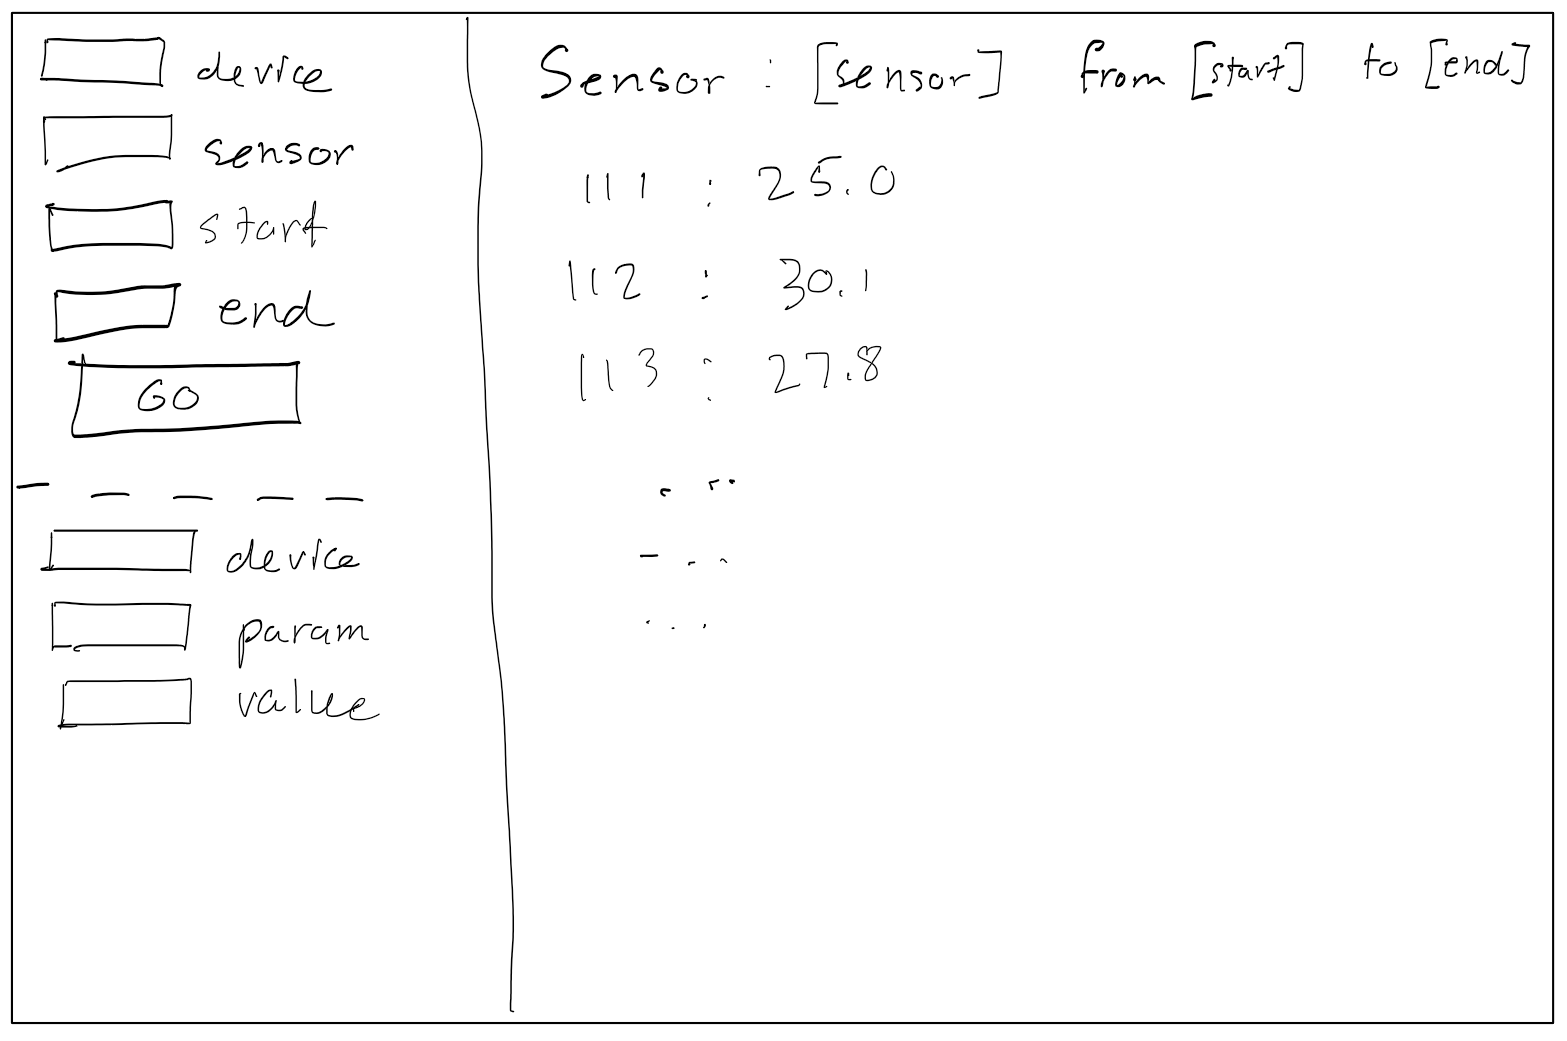 device
sensor
start
end
GO
device
param
value
Sensor : [sensor] from [start] to [end]
111 : 25.0
112 : 30.1
113 : 27.8
. . .
- . .
. . .